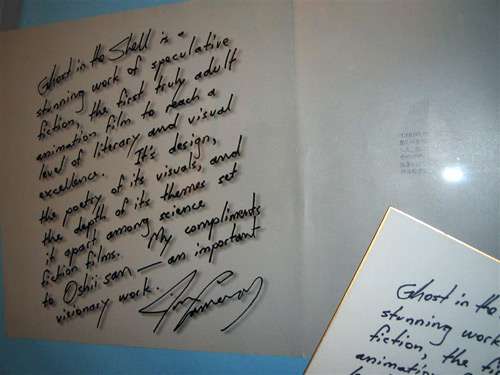 Ghost in the Shell is a
stunning work of speculative
fiction, the first truly adult
animation film to reach a
level of literary and visual
excellence. It's design,
the poetry of its visuals, and
the depth of its themes set
it apart among science
fiction films. My compliments
to Oshii san — an important
visionary work.
Ghost in the
stunning work
fiction, the fi
animation